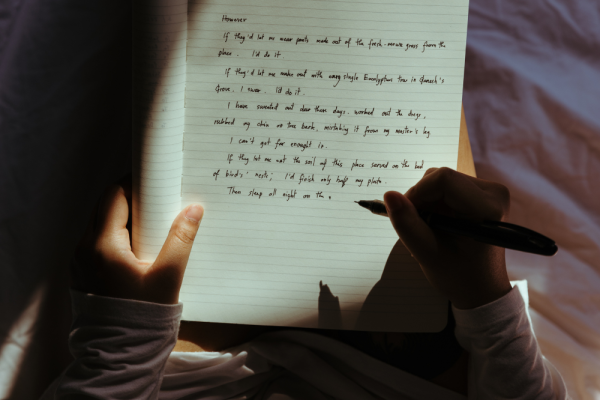 However
If they'd let me wear pants made out of the fresh-mown grass from the
place. I'd do it
If they'd let me make out with every single Eucalyptus tree in Ganesh's
Grove. I swear. I'd do it.
I have sweated out dew these days. worked out the dregs,
rubbed my chin on tree bark, mistaking it for my master's leg
I can't get far enough in.
If they let me eat the soil of this place served on the bed
of birds' nests; I'd finish only half my plate.
Then sleep all night on the